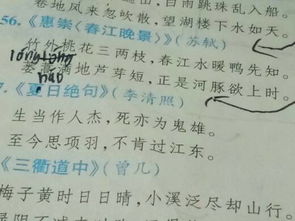 卷地风来忽吹散，望湖楼下水如天。
56.《惠崇〈春江晚景〉》（苏轼）
竹外桃花三两枝，春江水暖鸭先知。
蒌蒿满地芦芽短，正是河豚欲上时。
7.《夏日绝句》（李清照）
生当作人杰，死亦为鬼雄。
至今思项羽，不肯过江东。
《三衢道中》（曾几）
梅子黄时日日晴，小溪泛尽却山行。